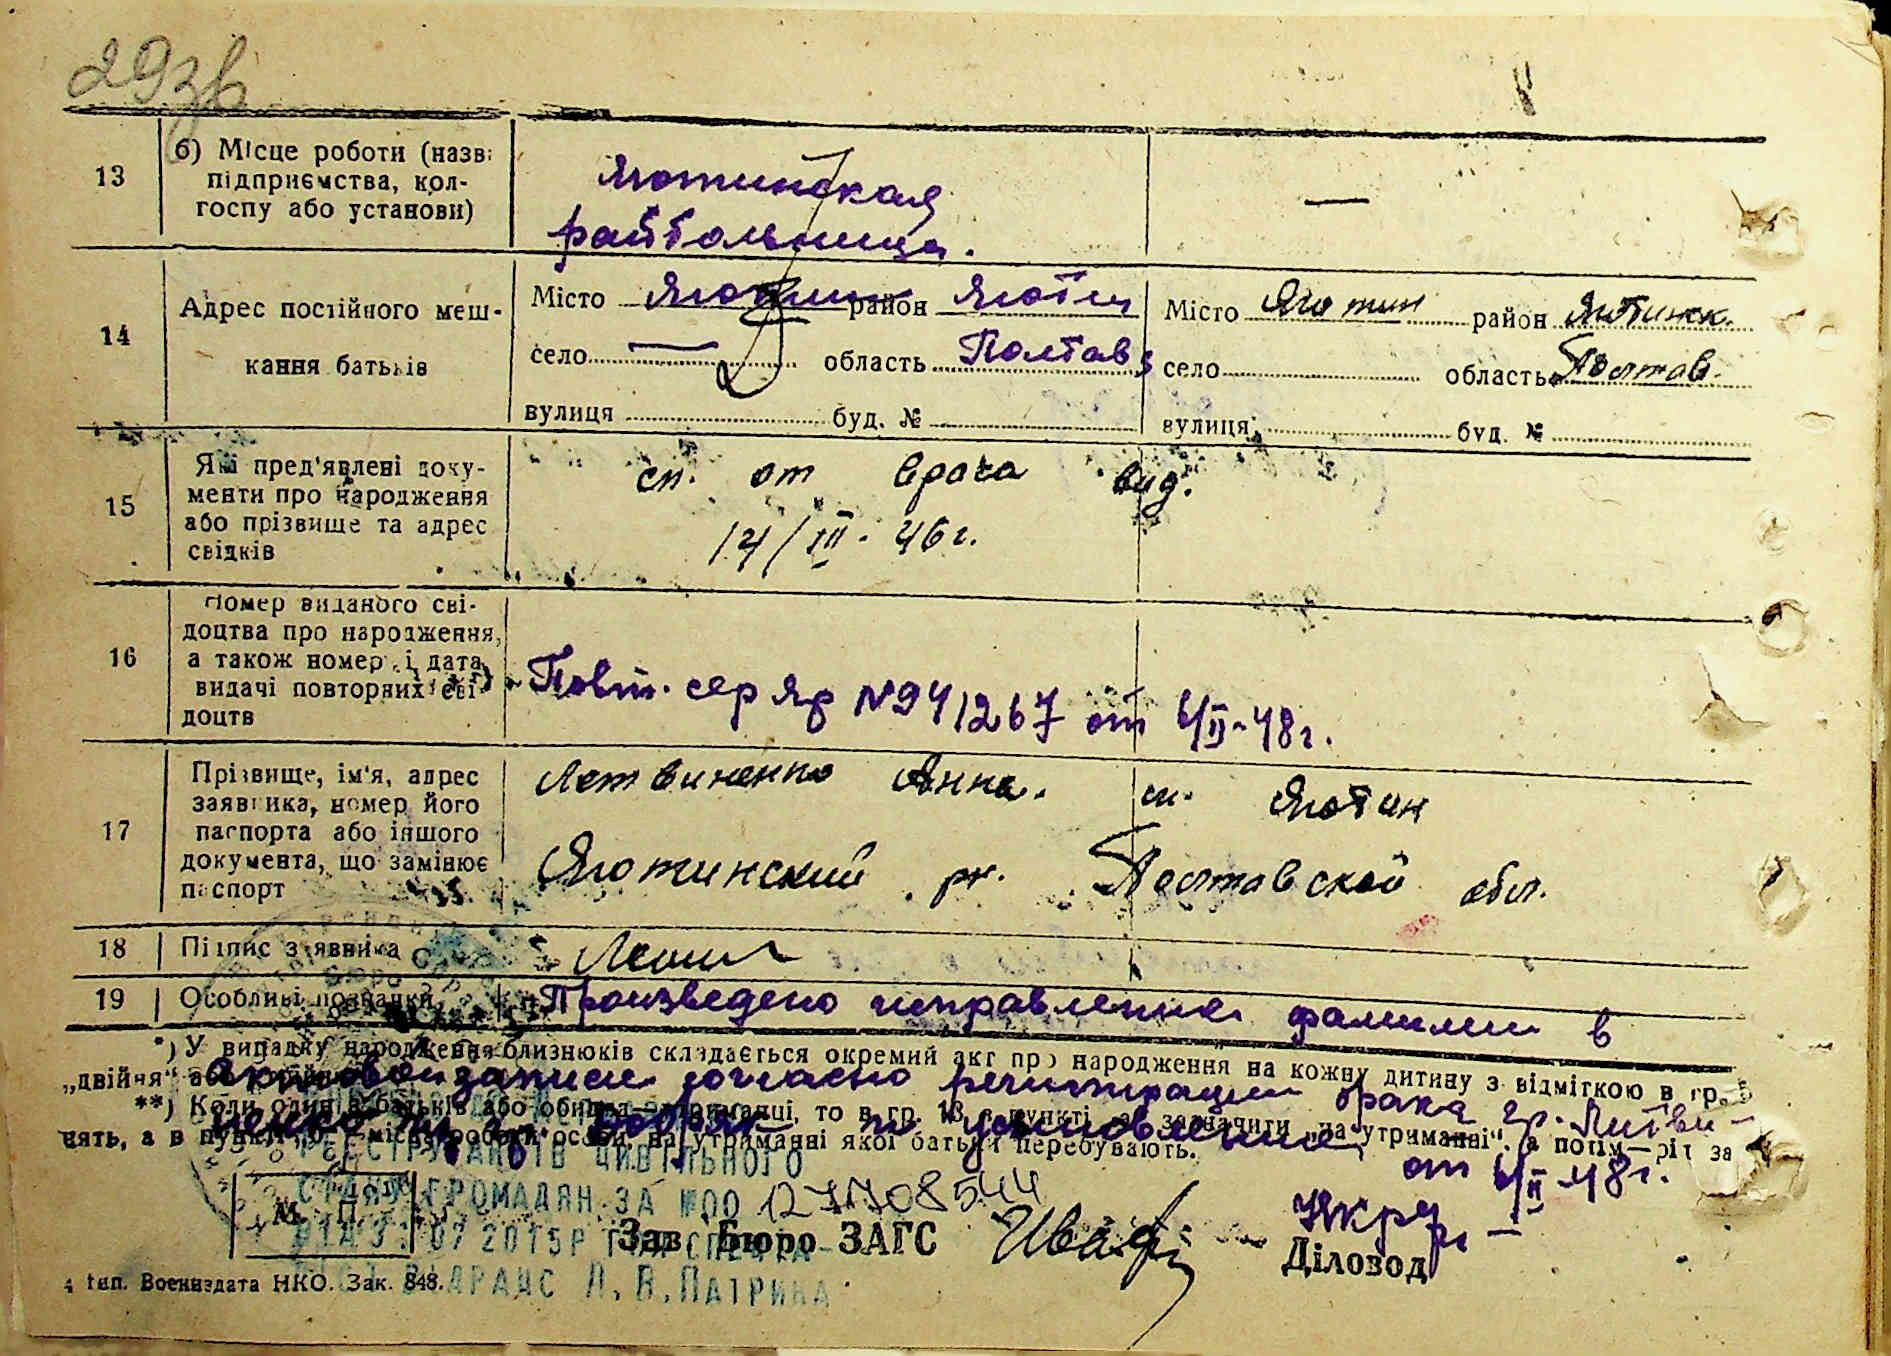 29зв
13
б) Місце роботи (назва
підприємства, кол-
госпу або установи)
Яготинская
райбольница.
—
14
Адрес постійного меш-
кання батьків
Місто Яготин район Яготин
село — область Полтавс
вулиця буд. №
Місто Яготин район Яготинск.
село область Полтав.
вулиця буд. №
15
Які пред'явлені доку-
менти про народження
або прізвище та адрес
свідків
сп. от врача вид.
14/III-46г.
16
Номер виданого сві-
доцтва про народження,
а також номер і дата
видачі повторних сві-
доцтв
Повт. сер Яр № 941267 от 6/II-48г.
17
Прізвище, ім'я, адрес
заявника, номер його
паспорта або іншого
документа, що замінює
паспорт
Летвиненко Анна. м. Яготин
Яготинский рн. Полтавской обл.
18 Підпис заявника
19 Особливі позначки
Произведено исправление фамилии в
актовой записи согласно регистрации брака гр. Литви-
ненко
от 6/II-48г.
*) У випадку народження близнюків складається окремий акт про народження на кожну дитину з відміткою в гр. 5
„двійня“
**) Коли один з батьків або обидва на утриманні, то в гр. 13 в пункті зазначити „на утриманні“, а потім
нять, а в пункті місце роботи особи, на утриманні якої батьки перебувають.
РЕЄСТРУ АКТІВ ЦИВІЛЬНОГО
СТАНУ ГРОМАДЯН ЗА №00 127708544
07 2015Р
Л. В. ПАТРИКА
М. П.
Зав. Бюро ЗАГС
Діловод
4 тип. Воениздата НКО. Зак. 848.